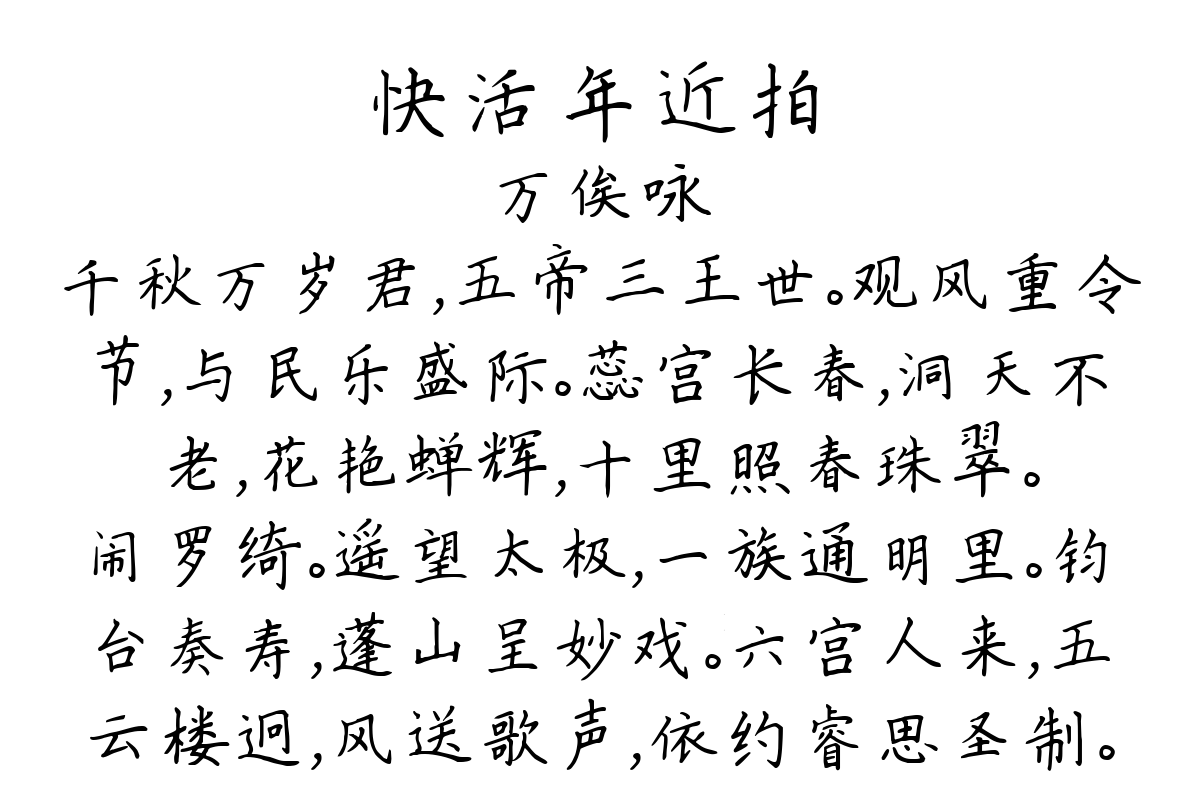 快活年近拍
万俟咏
千秋万岁君,五帝三王世。观风重令
节,与民乐盛际。蕊宫长春,洞天不
老,花艳蝉辉,十里照春珠翠。
闹罗绮。遥望太极,一族通明里。钧
台奏寿,蓬山呈妙戏。六宫人来,五
云楼迥,风送歌声,依约睿思圣制。